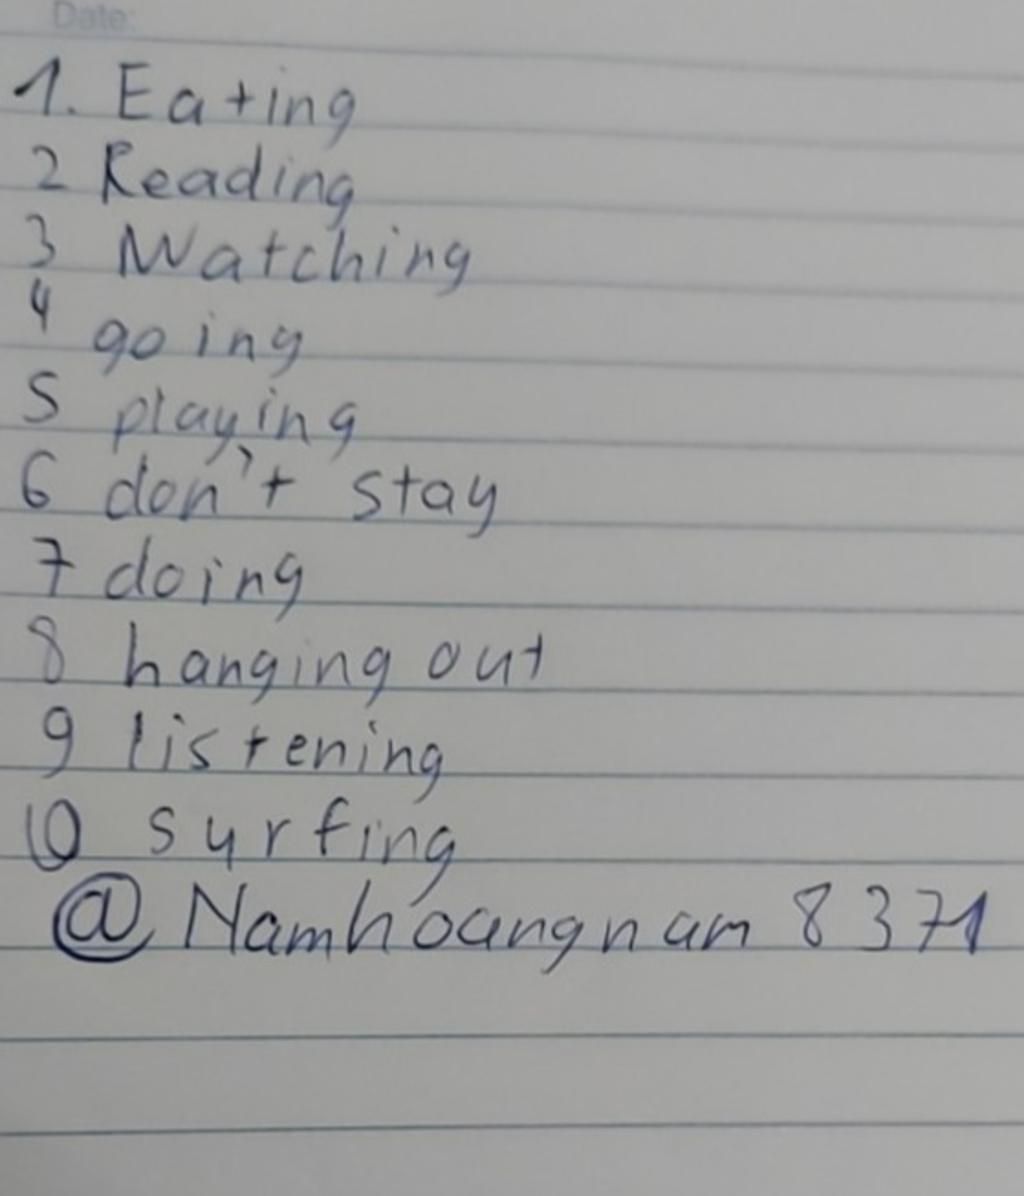 Date:
1. Eating
2 Reading
3 Watching
4 going
5 playing
6 don't stay
7 doing
8 hanging out
9 listening
10 surfing
@Namhoangnam 8371